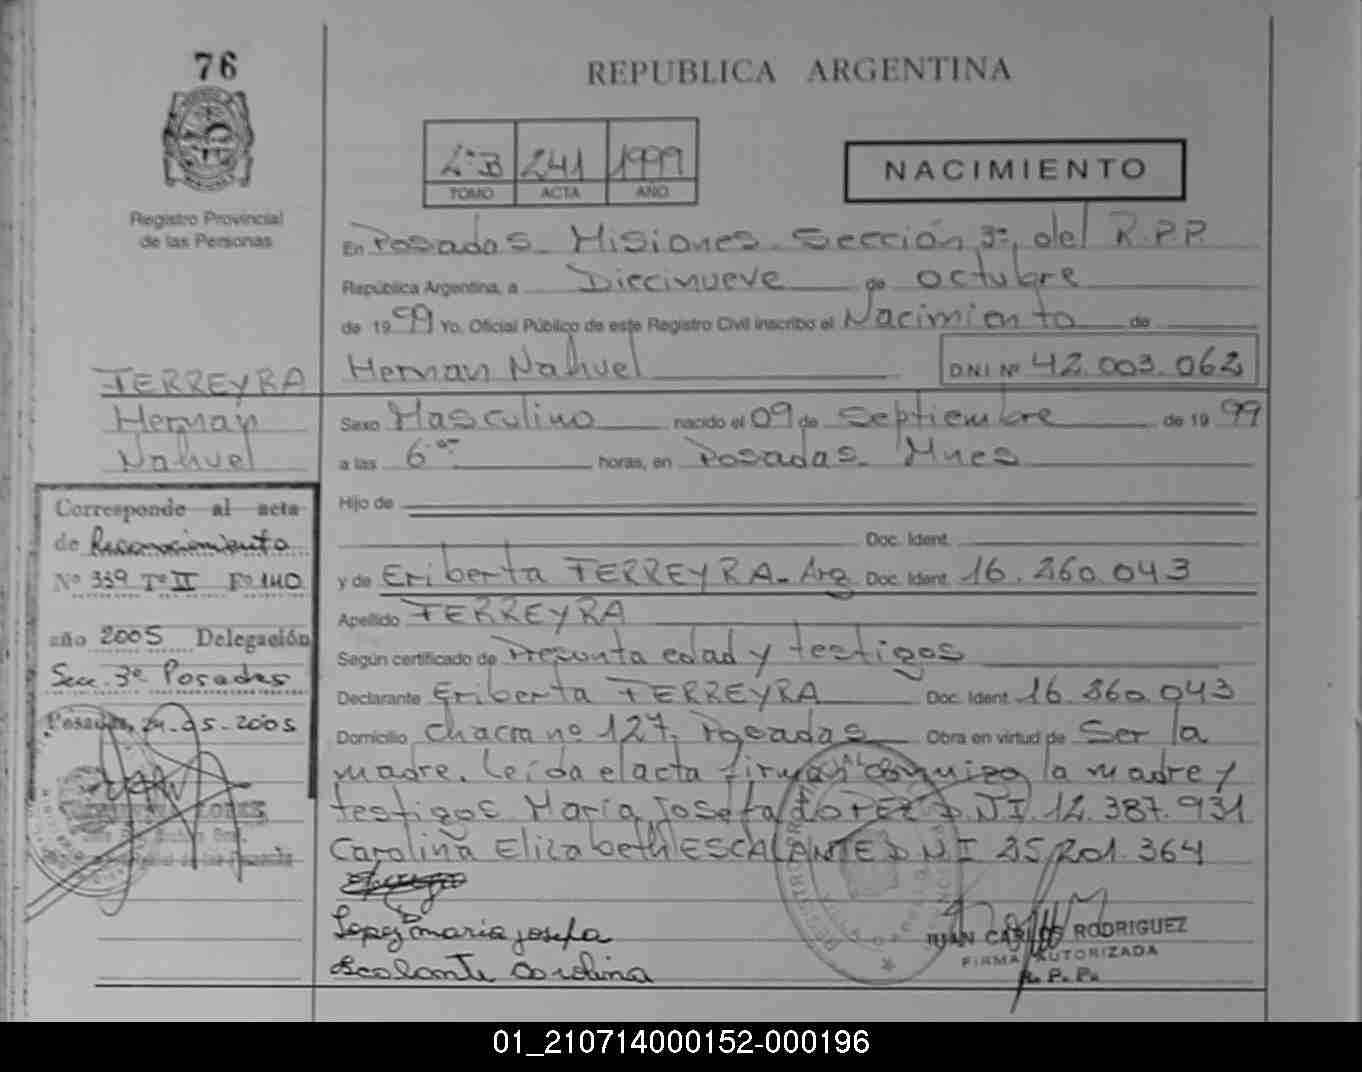 76
REPUBLICA ARGENTINA
Registro Provincial
de las Personas
2º B 241 1999
TOMO ACTA AÑO
NACIMIENTO
En Posadas Misiones Sección 3ª, del R.P.P.
República Argentina, a Diecinueve de octubre
de 1999 Yo, Oficial Público de este Registro Civil inscribo el Nacimiento de
Hernan Nahuel DNI Nº 42.003.062
FERREYRA
Hernan
Nahuel
Sexo Masculino nacido el 09 de Septiembre de 1999
a las 6 horas, en Posadas Mnes
Hijo de
Doc. Ident.
y de Eriberta FERREYRA - Arg Doc. Ident. 16.260.043
Apellido FERREYRA
Según certificado de Presunta edad y testigos
Declarante Eriberta FERREYRA Doc. Ident. 16.260.043
Domicilio chacra nº 127, Posadas Obra en virtud de Ser la
madre. Leída el acta firman conmigo la madre y
testigos María Josefa LOPEZ D.N.I. 12.387.931
Carolina Elizabeth ESCALANTE DNI 25.201.364
Lopez maria josefa
Escalante Carolina
JUAN CARLOS RODRIGUEZ
FIRMA AUTORIZADA
R. P. P.
Corresponde al acta
de Reconocimiento
Nº 339 Tº II Fº 140
año 2005 Delegación
Secc. 3ª Posadas
Posadas, 24-05-2005
01_210714000152-000196